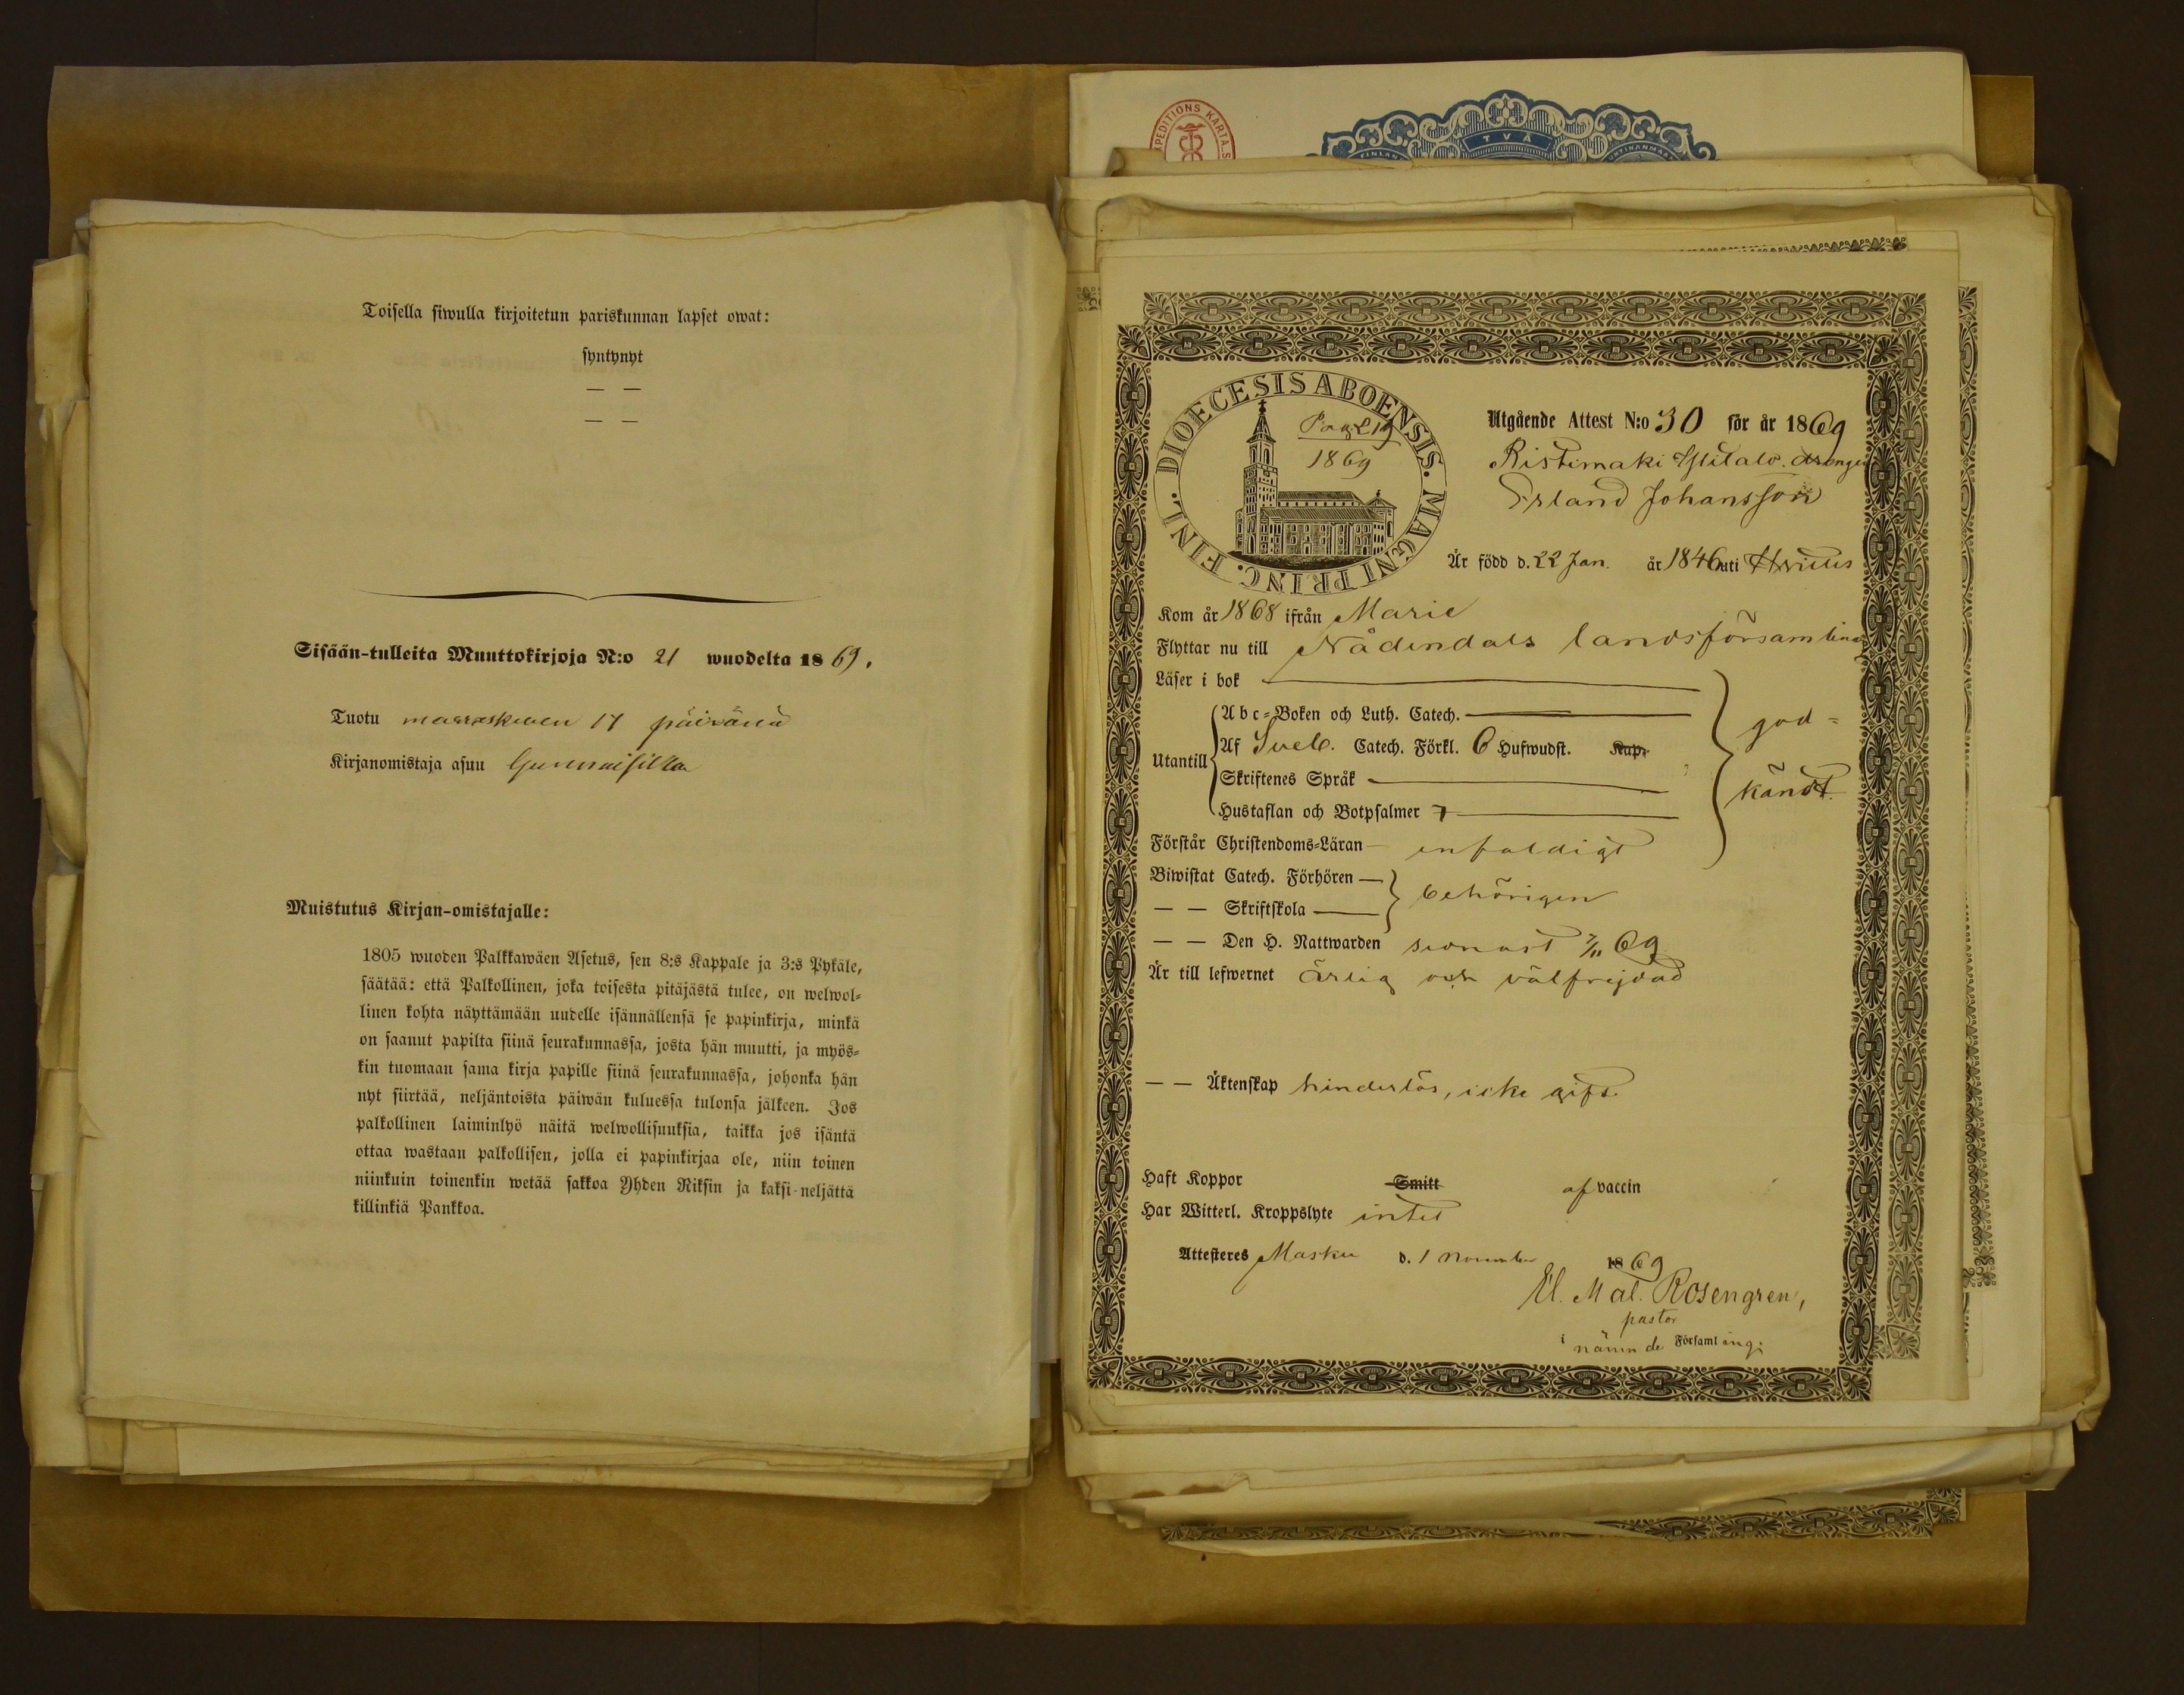 Toisella siwulla kirjoitetun pariskunnan lapset owat:
syntynyt
— —
— —
Sisään-tulleita Muuttokirjoja N:o 21 wuodelta 1869.
Tuotu marraskuun 17 päivänä
Kirjanomistaja asuu
Muistutus Kirjan-omistajalle:
1805 wuoden Palkkawäen Asetus, sen 8:s Kappale ja 3:s Pykäle,
säätää: että Palkollinen, joka toisesta pitäjästä tulee, on welwol=
linen kohta näyttämään uudelle isännällensä se papinkirja, minkä
on saanut papilta siinä seurakunnassa, josta hän muutti, ja myös=
kin tuomaan sama kirja papille siinä seurakunnassa, johonka hän
nyt siirtää, neljäntoista päiwän kuluessa tulonsa jälkeen. Jos
palkollinen laiminlyö näitä welwollisuuksia, taikka jos isäntä
ottaa wastaan palkollisen, jolla ei papinkirjaa ole, niin toinen
niinkuin toinenkin wetää sakkoa Yhden Riksin ja kaksi-neljättä
killinkiä Pankkoa.
EXPEDITIONS KARTA.S
TVÅ
FINLAN
DIOECESIS ABOENSIS. MAGNI PRINC. FINL.
Pag 219
1869
Utgående Attest N:o 30 för år 1869
Ristimaki drengen
Erland Johansson
Är född d. 22 Jan. år 1846 uti
Kom år 1868 ifrån Marie
Flyttar nu till Nådendals landsförsamling
Läser i bok
Utantill
Abc=Boken och Luth. Catech.
Af Sveb. Catech. Förkl. 6 Hufwudst. Kap.
Skriftenes Språk
Hustaflan och Botpsalmer 7
god=
kändt.
Förstår Christendoms=Läran enfaldigt
Biwistat Catech. Förhören —
— — Skriftskola —
behörigen
— — Den H. Nattwarden senast 7/11 69
Är till lefwernet ärlig och välfrejdad
— — Äktenskap hinderlös, icke gift.
Haft Koppor Smitt af vaccin
Har Witterl. Kroppslyte intet
Attesteres Masku d. 1 november 1869
Rosengren,
pastor
i nämnde Församling.